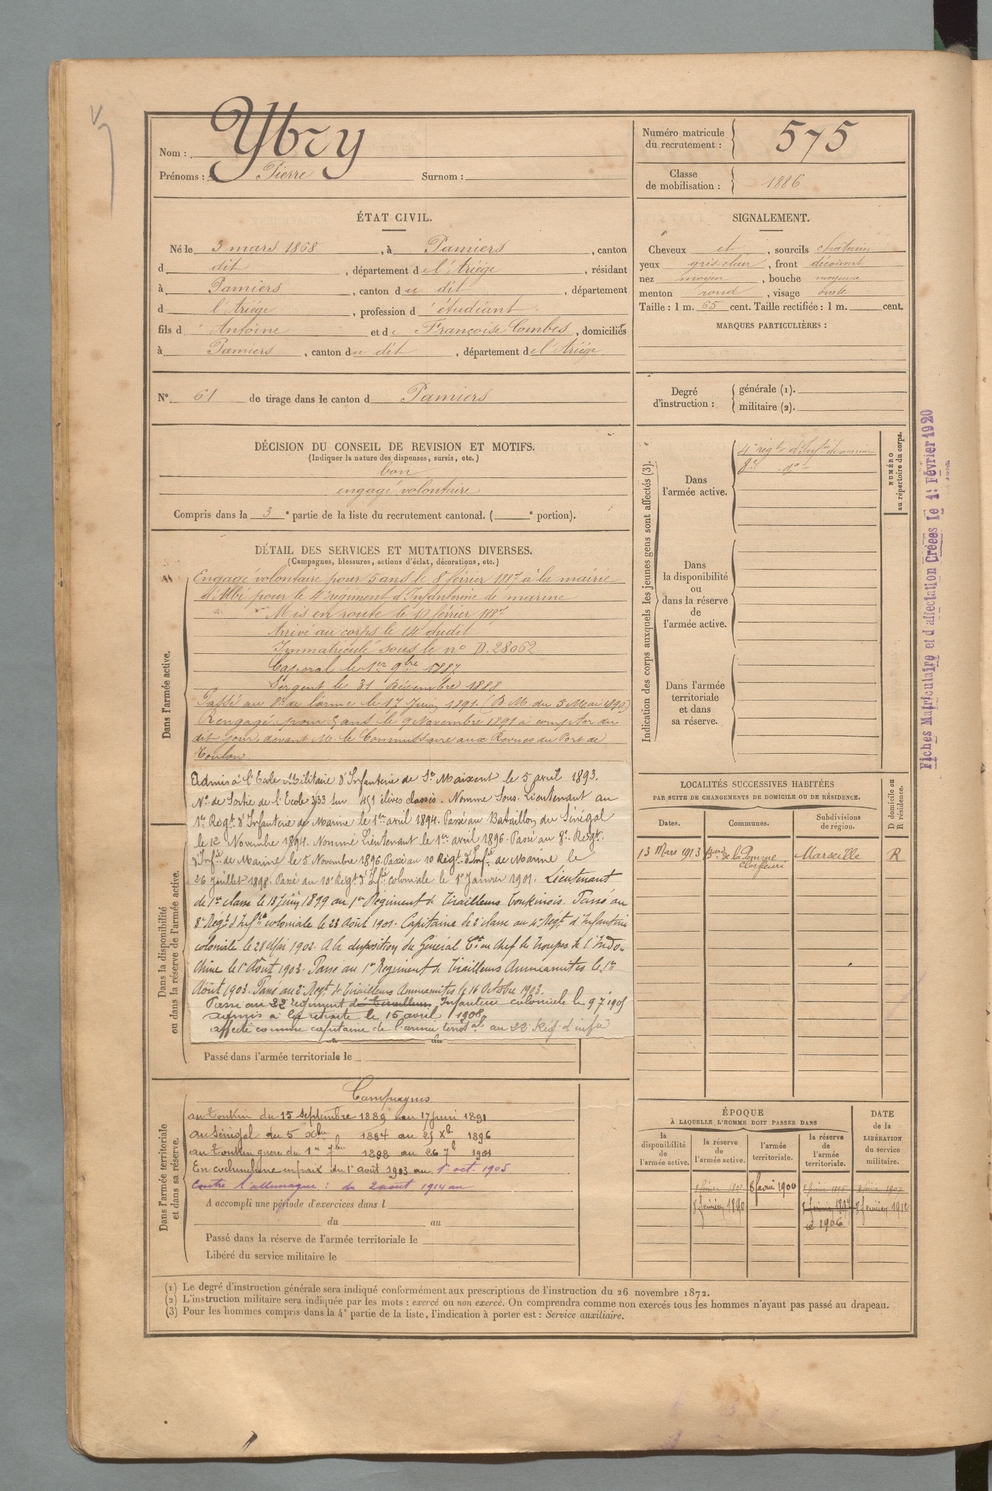 Nom : Ybry
Prénoms : Pierre Surnom :
Numéro matricule du recrutement : 575
Classe de mobilisation : 1886
ÉTAT CIVIL.
Né le 3 mars 1868, à Pamiers, canton
d dit, département de l'Ariège, résidant
à Pamiers, canton du dit, département
d l'Ariège, profession d'étudiant
fils d'Antoine et de Françoise Combes, domiciliés
à Pamiers, canton du dit, département de l'Ariège
N° 61 de tirage dans le canton d Pamiers
SIGNALEMENT.
Cheveux et, sourcils chatain
yeux gris-clair, front découvert
nez moyen, bouche moyenne
menton rond, visage ovale
Taille : 1 m. 65 cent. Taille rectifiée : 1 m. cent.
MARQUES PARTICULIÈRES :
Degré d'instruction : générale (1).
militaire (2).
DÉCISION DU CONSEIL DE REVISION ET MOTIFS.
(Indiquer la nature des dispenses, sursis, etc.)
bon
engagé volontaire
Compris dans la 3e partie de la liste du recrutement cantonal. ( e portion).
DÉTAIL DES SERVICES ET MUTATIONS DIVERSES.
(Campagnes, blessures, actions d'éclat, décorations, etc.)
Dans l'armée active.
Engagé volontaire pour 5 ans le 8 février 1887 à la mairie
d'Albi pour le 4e régiment d'Infanterie de marine
Mis en route le 10 février 1887
Arrivé au corps le 14 dudit
Immatriculé sous le no D. 28062
Caporal le 1er 9bre 1887
Sergent le 31 Décembre 1888
Passé au 8e de l'arme le 17 Juin 1891 (B. M. du 3 Mai 1890)
Rengagé pour 5 ans le 9 Novembre 1891 à compter du
dit jour, devant Mr le Commissaire aux Revues du Port de
Toulon
Admis à l'Ecole Militaire d'Infanterie de St Maixent le 5 avril 1893.
No de Sortie de l'Ecole 233 sur 451 élèves classés. Nommé Sous-Lieutenant au
1er Régt d'Infanterie de Marine le 1er avril 1894. Passé au Bataillon du Sénégal
le 12 Novembre 1894. Nommé Lieutenant le 1er avril 1896. Passé au 8e Régt.
d'Inf.ie de Marine le 5 Novembre 1896. Passé au 10 Régt d'Inf.ie de Marine le
26 juillet 1898. Passé au 10e Régt d'Inf.ie coloniale le 1er Janvier 1901. Lieutenant
de 1re classe le 13 Juin 1899 au 1er Régiment de Tirailleurs Tonkinois. Passé au
8e Régt d'Inf.ie coloniale le 23 Août 1901. Capitaine de 2e classe au 4e Régt d'Infanterie
coloniale le 28 Mai 1903. A la disposition du Général Ct en Chef des Troupes de l'Indo-
Chine le 1er Août 1903. Passé au 1er Régiment de Tirailleurs Annamites le 1er
Août 1903. Passé au 2e Régt de Tirailleurs Annamites le 16 Octobre 1903.
Passé au 22 régiment de tirailleurs Infanterie coloniale le 9 7 1905
admis à la retraite le 15 avril 1908
affecté comme capitaine de l'armée territale au 22e Rég. d'infie
Dans la disponibilité ou dans la réserve de l'armée active.
Passé dans l'armée territoriale le
Dans l'armée territoriale et dans sa réserve.
Campagnes
au Tonkin du 15 septembre 1889 au 17 juin 1891
au Sénégal du 5 Xbre 1894 au 25 Xbre 1896
au Tonkin guerre du 1er 7bre 1898 au 26 7bre 1901
En cochinchine en paix du 1er août 1903 au 1er oct. 1905
Contre l'allemagne : du 2 août 1914 au
A accompli une période d'exercices dans l
du au
Passé dans la réserve de l'armée territoriale le
Libéré du service militaire le
Indication des corps auxquels les jeunes gens sont affectés (3).
Dans l'armée active.
4e régt d'Infie de marine
8e do
NUMÉRO au répertoire du corps.
Dans la disponibilité ou dans la réserve de l'armée active.
Dans l'armée territoriale et dans sa réserve.
LOCALITÉS SUCCESSIVES HABITÉES
PAR SUITE DE CHANGEMENTS DE DOMICILE OU DE RÉSIDENCE.
Dates. Communes. Subdivisions de région. D domicile ou R résidence.
13 Mars 1913 de la Pomme Marseille R
ÉPOQUE
À LAQUELLE L'HOMME DOIT PASSER DANS
la disponibilité de l'armée active. la réserve de l'armée active. l'armée territoriale. la réserve de l'armée territoriale.
DATE de la LIBÉRATION du service militaire.
8 février 1900
8 février 1890 8 février 1912
et 1906
(1) Le degré d'instruction générale sera indiqué conformément aux prescriptions de l'instruction du 26 novembre 1872.
(2) L'instruction militaire sera indiquée par les mots : exercé ou non exercé. On comprendra comme non exercés tous les hommes n'ayant pas passé au drapeau.
(3) Pour les hommes compris dans la 4e partie de la liste, l'indication à porter est : Service auxiliaire.
Fiches Matriculaire et d'affectation Créées le 1er Février 1920